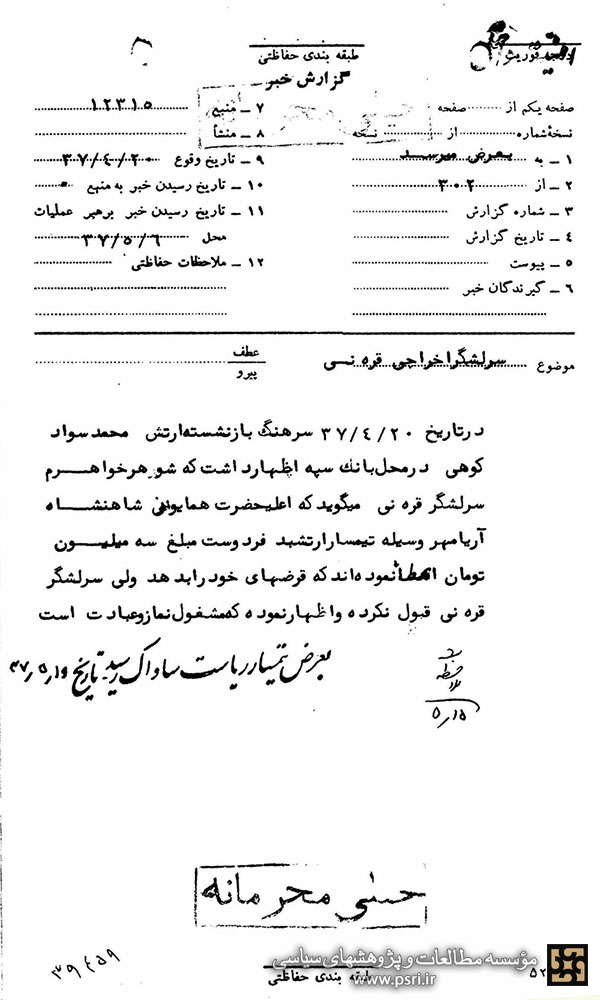 طبقه بندی حفاظتی
گزارش خبر
صفحه یکم از ........ صفحه
نسخه شماره ........ از ........ نسخه
۱ ـ به بعرض میرسد
۲ ـ از ۳۰۲
۳ ـ شماره گزارش
۴ ـ تاریخ گزارش
۵ ـ پیوست
۶ ـ گیرندگان خبر
۷ ـ منبع ۱۲۳۱۵
۸ ـ منشأ
۹ ـ تاریخ وقوع ۳۷/۴/۲۰
۱۰ ـ تاریخ رسیدن خبر به منبع
۱۱ ـ تاریخ رسیدن خبر برهبر عملیات
محل ۳۷/۵/۶
۱۲ ـ ملاحظات حفاظتی
موضوع سرلشگر اخراجی قره نی
عطف
پیرو
در تاریخ ۳۷/۴/۲۰ سرهنگ بازنشسته ارتش محمد سواد
کوهی در محل بانك سپه اظهار داشت که شوهر خواهرم
سرلشگر قره نی میگوید که اعلیحضرت همایونی شاهنشاه
آریامهر وسیله تیمسار ارتشبد فردوست مبلغ سه میلیون
تومان اعطا نموده اند که قرضهای خود را بدهد ولی سرلشگر
قره نی قبول نکرده و اظهار نموده که مشغول نماز و عبادت است
بعرض تیمسار ریاست ساواک رسید. تاریخ ۳۷٫۵٫۱۶
ملاحظه شد
۵٫۱۵
خیلی محرمانه
۳۹۴۵۹
طبقه بندی حفاظتی
۵۲
مؤسسه مطالعات و پژوهشهای سیاسی
www.psri.ir